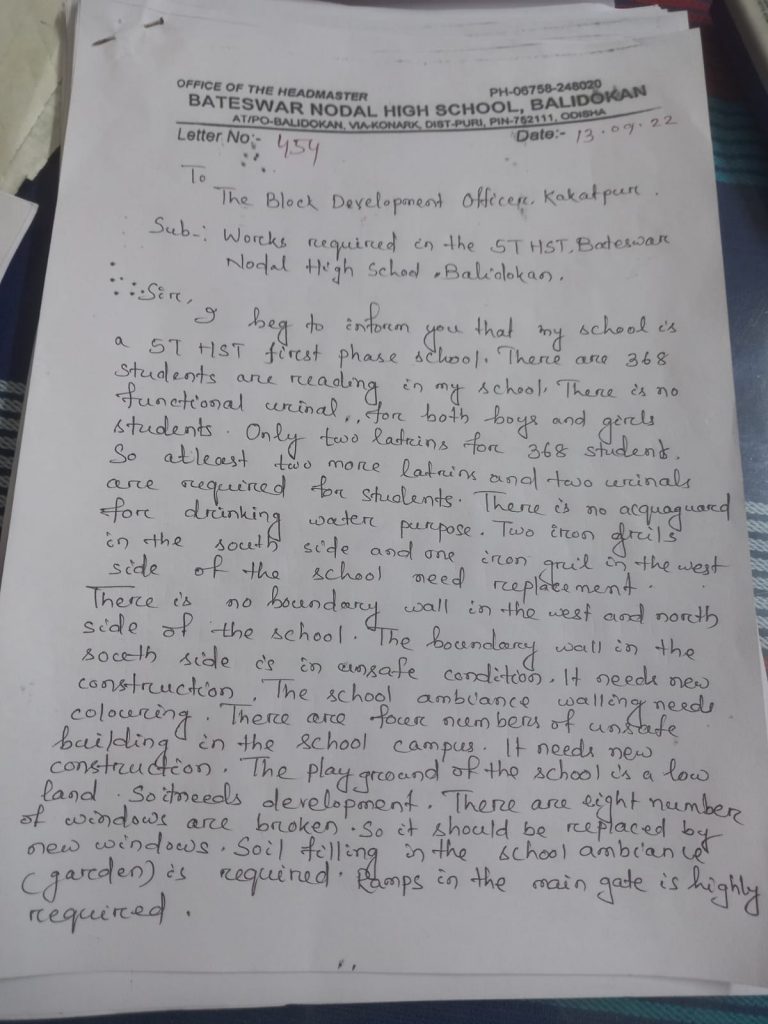 OFFICE OF THE HEADMASTER PH-06758-248020
BATESWAR NODAL HIGH SCHOOL, BALIDOKAN
AT/PO-BALIDOKAN, VIA-KONARK, DIST-PURI, PIN-752111, ODISHA
Letter No:- 454 Date:- 13.09.22
To
The Block Development Officer, Kakatpur.
Sub-: Works required in the 5T HST, Bateswar
Nodal High School, Balidokan.
Sir,
I beg to inform you that my school is
a 5T HST first phase school. There are 368
students are reading in my school. There is no
functional urinal,, for both boys and girls
students. Only two latrins for 368 student.
So atleast two more latrins and two urinals
are required for students. There is no acquaguard
for drinking water purpose. Two iron grils
in the south side and one iron gril in the west
side of the school need replacement.
There is no boundary wall in the west and north
side of the school. The boundary wall in the
south side is in unsafe condition. It needs new
construction. The school ambiance walling needs
colouring. There are four numbers of unsafe
building in the school campus. It needs new
construction. The play ground of the school is a low
land. So it needs development. There are eight number
of windows are broken. So it should be replaced by
new windows. Soil filling in the school ambiance
(garden) is required. Ramps in the main gate is highly
required.